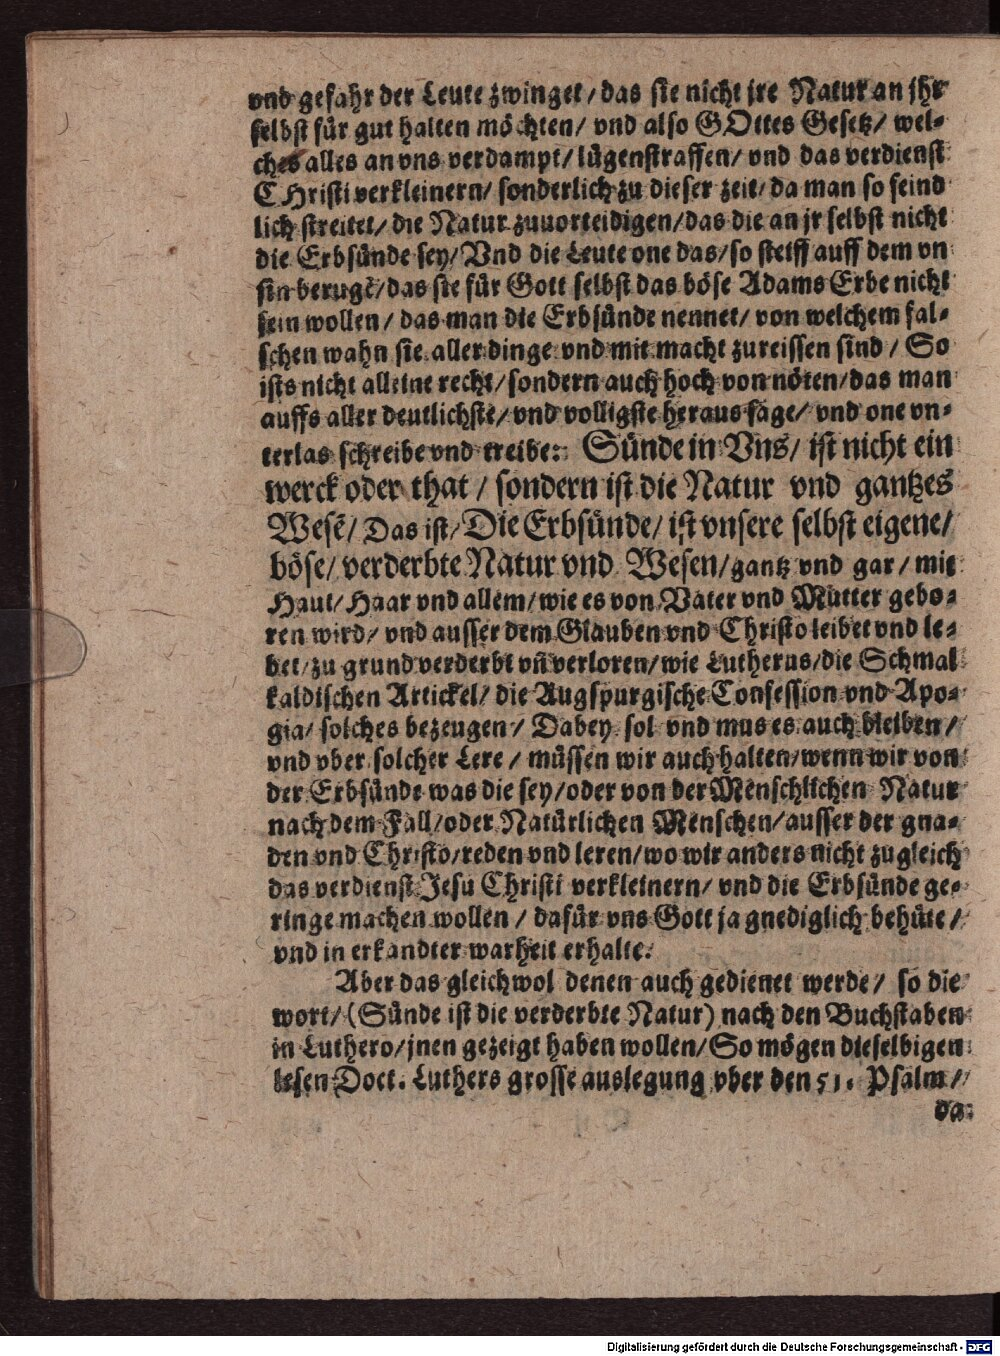 vnd gefahr der Leute zwinget/ das sie nicht jre Natur an jhr
selbst für gut halten möchten/ vnd also GOttes Gesetz/ wel-
ches alles an vns verdampt/ lügenstraffen/ vnd das verdienst
CHristi verkleinern/ sonderlich zu dieser zeit/ da man so feind
lich streitet/ die Natur zuuorteidigen/ das die an jr selbst nicht
die Erbsünde sey/ Vnd die Leute one das/ so steiff auff dem vn
sin berugē/ das sie für Gott selbst das böse Adams Erbe nicht
sein wollen/ das man die Erbsünde nennet/ von welchem fal-
schen wahn sie aller dinge vnd mit macht zureissen sind/ So
ists nicht alleine recht/ sondern auch hoch von nöten/ das man
auffs aller deutlichste/ vnd volligste heraus sage/ vnd one vn-
terlas schreibe vnd treibe: Sünde in Vns/ ist nicht ein
werck oder that/ sondern ist die Natur vnd gantzes
Wesē/ Das ist/ Die Erbsünde/ ist vnsere selbst eigene/
böse/ verderbte Natur vnd Wesen/ gantz vnd gar/ mit
Haut/ Haar vnd allem/ wie es von Vater vnd Mutter gebo-
ren wird/ vnd ausser dem Glauben vnd Christo leibet vnd le-
bet/ zu grund verderbt vñ verloren/ wie Lutherus/ die Schmal
kaldischen Artickel/ die Augspurgische Confession vnd Apo-
gia/ solches bezeugen/ Dabey sol vnd mus es auch bleiben/
vnd vber solcher Lere/ müssen wir auch halten/ wenn wir von
der Erbsünde was die sey/ oder von der Menschlichen Natur
nach dem Fall/ oder Natürlichen Menschen/ ausser der gna-
den vnd Christo/ reden vnd leren/ wo wir anders nicht zugleich
das verdienst Jesu Christi verkleinern/ vnd die Erbsünde ge-
ringe machen wollen/ dafür vns Gott ja gnediglich behüte/
vnd in erkandter warheit erhalte.
Aber das gleichwol denen auch gedienet werde/ so die
wort/ (Sünde ist die verderbte Natur) nach den Buchstaben
in Luthero/ jnen gezeigt haben wollen/ So mögen dieselbigen
lesen Doct. Luthers grosse auslegung vber den 51. Psalm/
da
Digitalisierung gefördert durch die Deutsche Forschungsgemeinschaft - DFG